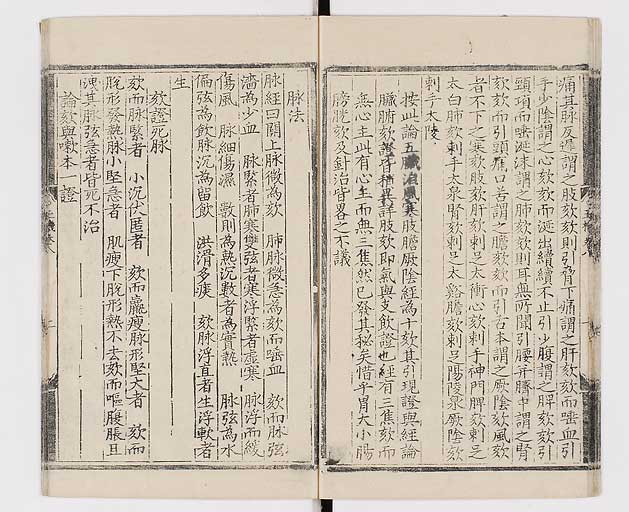 痛其脉反遲謂之肢欬欬則引脅下痛謂之肝欬欬而唾血引
手少陰謂之心欬欬而涎出續續不止引少腹謂之脾欬欬引
頸項而唾涎沫謂之肺欬欬則耳無所聞引腰并臍中謂之腎
欬欬而引頭痛口苦謂之膽欬欬而引舌本謂之厥陰欬風欬
者不下之寒欬肢欬肝欬刺足太衝心欬刺手神門脾欬刺足
太白肺欬刺手太泉腎欬刺足太谿膽欬刺足陽陵泉厥陰欬
刺手太陵
按此論五臟泊風寒肢膽厥陰經為十欬其引現證與經論
臟腑欬證皆有詳肢欬即氣與支飲證也經有三焦欬而
無心主此有心主而無三焦然已發其秘矣惜乎胃大小腸
膀胱欬及針治皆畧之不議
脉法
脉經曰關上脉微為欬 肺脉微急為欬而唾血 欬而脉弦
濇為少血 脉緊者肺寒雙弦者寒浮緊者虛寒 脉浮而緩
傷風 脉細傷濕 數則為熱沉數者為實熱 脉弦為水
偏弦為飲脉沉為留飲 洪滑多痰 欬脉浮直者生浮軟者
生
欬證死脉
欬而脉緊者 小沉伏匿者 欬而羸瘦脉形堅大者 欬而
脫形發熱脉小堅急者 肌瘦下脫形熱不去欬而嘔腹脹且
洩其脉弦急者皆死不治
論欬與嗽本一證